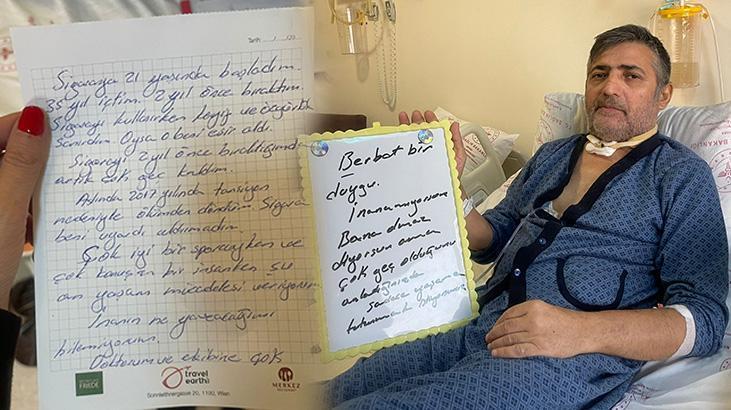 Tarih / /20
Sigaraya 21 yaşında başladım
35 yıl içtim. 2 yıl önce bıraktım.
Sigarayı kullanırken keyif ve özgürlük
Sanırdım Oysa o beni esir aldı.
Sigarayı 2 yıl önce bıraktığımda
artık çok geç kaldım.
Aslında 2017 yılında tansiyon
nedeniyle ölümden döndüm Sigara
beni uyardı aldırmadım.
Çok iyi bir sporcuyken ve
çok konuşan bir insanken şu
an yaşam mücadelesi veriyorum
İnanın ne yapacağımı
bilemiyorum.
Doktorum ve ekibine çok
FRIEDE
travel
earth
Sonnleithnergasse 20, 1100, Wien
MERKEZ
Berbat bir
duygu.
İnanamıyorsun
Bana olmaz
diyorsun ama
Çok geç olduğunu
anladığınızda
sadece yaşama
tutunmak istiyorsunuz